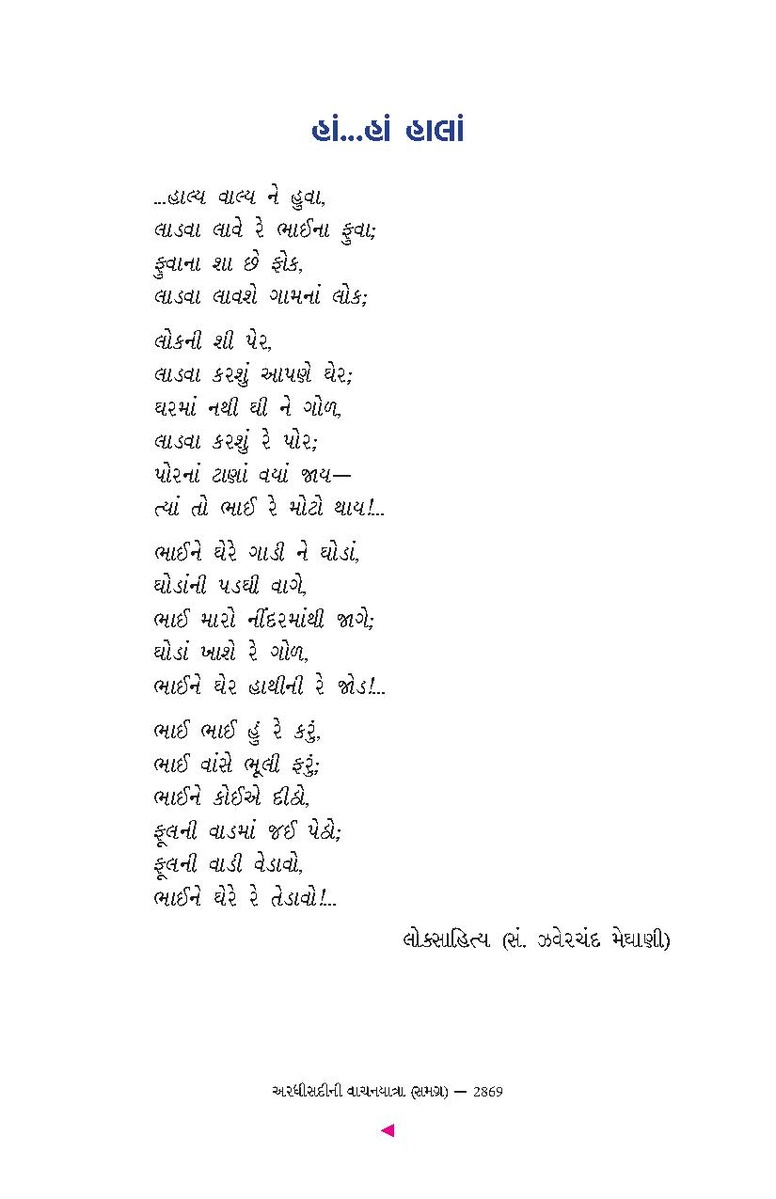 હાં...હાં હાલાં
...હાલ્ય વાલ્ય ને હુવા,
લાડવા લાવે રે ભાઈના ફુવા;
ફુવાના શા છે ફોક,
લાડવા લાવશે ગામનાં લોક;
લોકની શી પેર,
લાડવા કરશું આપણે ઘેર;
ઘરમાં નથી ઘી ને ગોળ,
લાડવા કરશું રે પોર;
પોરનાં ટાણાં વયાં જાય—
ત્યાં તો ભાઈ રે મોટો થાય!...
ભાઈને ઘેરે ગાડી ને ઘોડાં,
ઘોડાંની પડઘી વાગે,
ભાઈ મારો નીંદરમાંથી જાગે;
ઘોડાં ખાશે રે ગોળ,
ભાઈને ઘેર હાથીની રે જોડ!...
ભાઈ ભાઈ હું રે કરું,
ભાઈ વાંસે ભૂલી ફરું;
ભાઈને કોઈએ દીઠો,
ફૂલની વાડમાં જઈ પેઠો;
ફૂલની વાડી વેડાવો,
ભાઈને ઘેરે રે તેડાવો!...
લોકસાહિત્ય (સં. ઝવેરચંદ મેઘાણી)
અરધીસદીની વાચનયાત્રા (સમગ્ર) — 2869